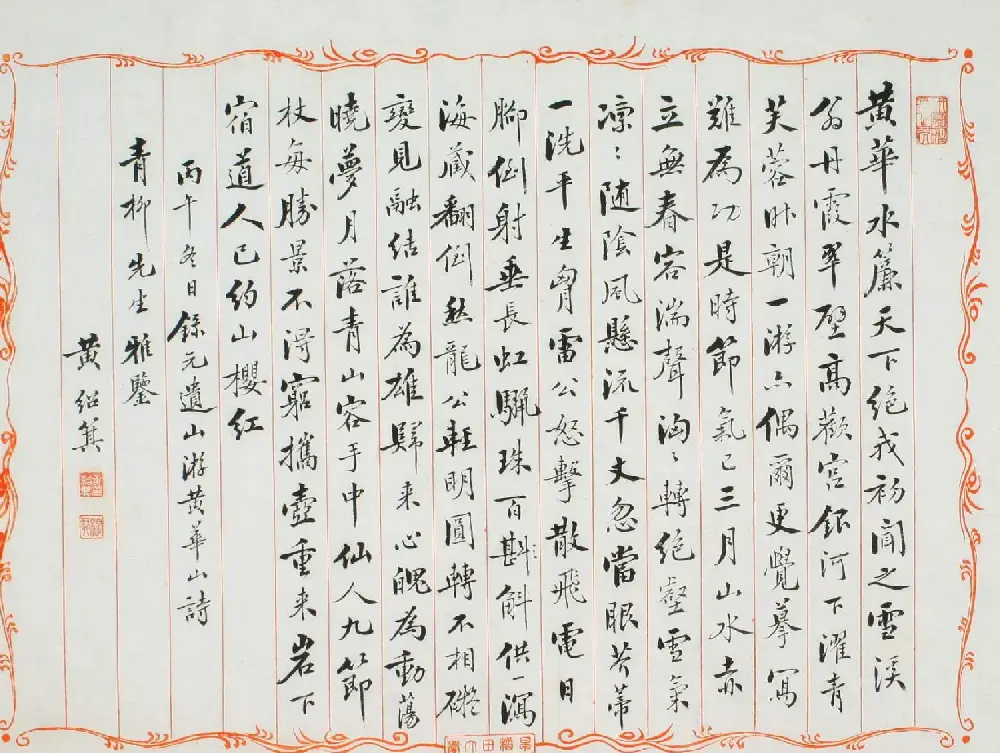 黄華水簾天下絕我初聞之雪溪
翁丹霞翠壁高歡宮銀河下濯青
芙蓉昨朝一游亦偶爾更覺摹寫
難為功是時節氣已三月山水赤
立無春容湍聲洶〻轉絕壑雪氣
凜〻随陰風懸流千丈忽當眼芥蒂
一洗平生胷雷公怒擊散飛電日
脚倒射垂長虹驪珠百斟斛供一瀉
海藏翻倒愁龍公軽明圓轉不相礙
變見融結誰為雄歸来心魄為動蕩
曉夢月落青山容手中仙人九節
杖每勝景不得窮攜壺重来岩下
宿道人已約山櫻紅
丙午冬日錄元遺山游黄華山詩
青柳先生雅鑒
黄紹箕